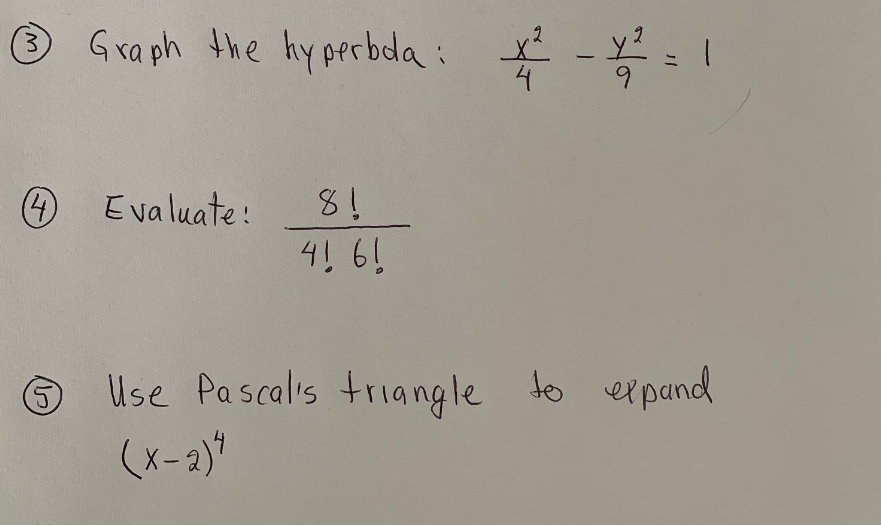 ③ Graph the hyperbola: x²/4 - y²/9 = 1
④ Evaluate: 8!/(4! 6!)
⑤ Use Pascal's triangle to expand
(x-2)⁴